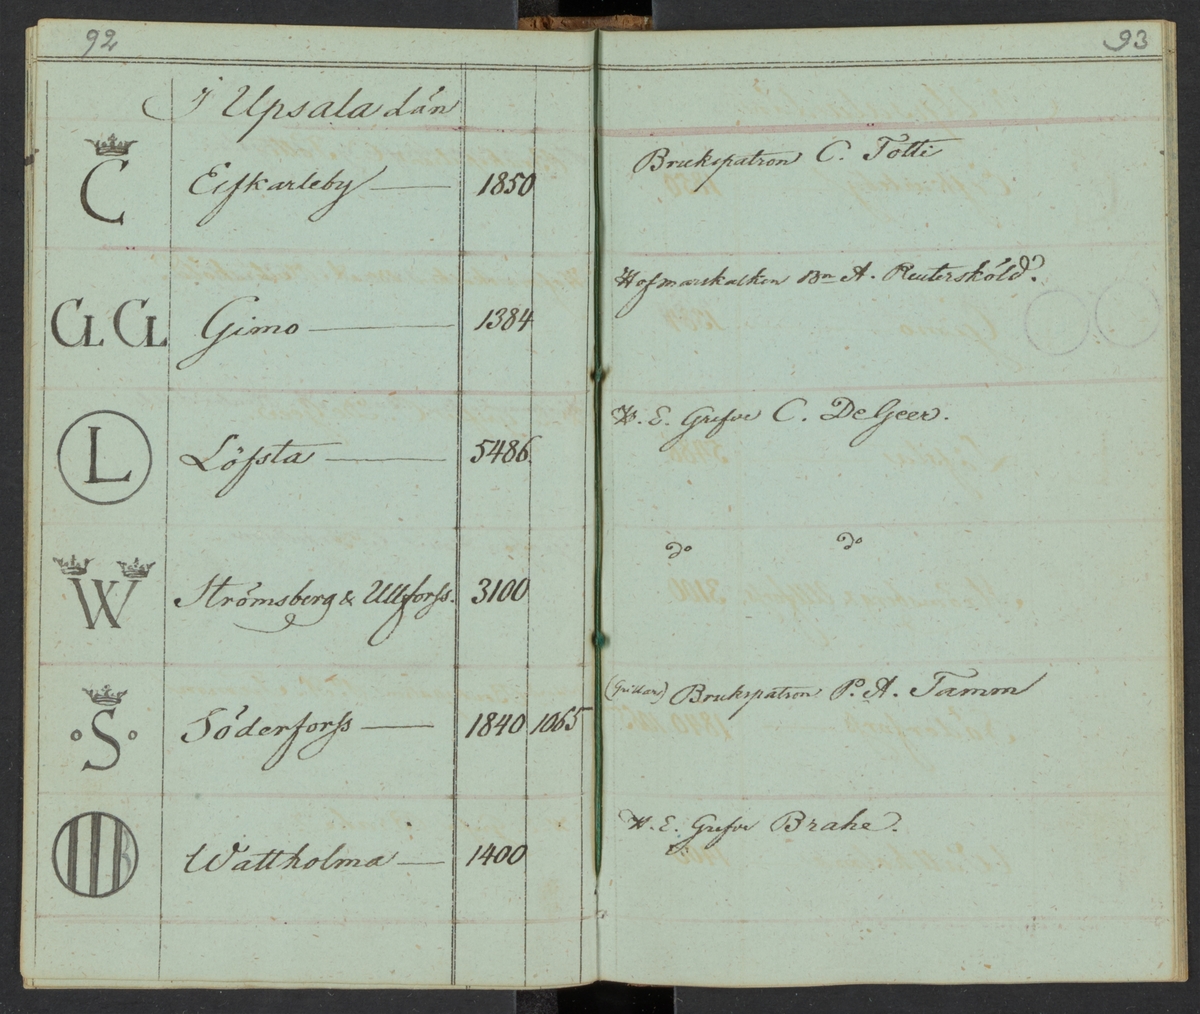 92
93
I Upsala Län
C Elfkarleby 1850 Brukspatron C. Tottie
GL GL Gimo 1384 Hofmarskalken Bn A. Reutersköld.
L Löfsta 5486 H. E. Grefve C. De Geer.
W Strömsberg & Ullforss. 3100 do do
S Söderforss 1840 1065 Brukspatron P. A. Tamm
Wattholma 1400 H. E. Grefve Brahe.